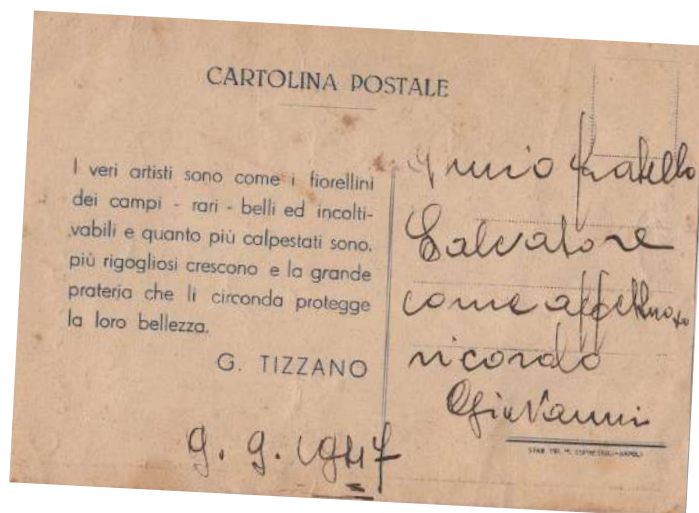 CARTOLINA POSTALE
I veri artisti sono come i fiorellini
dei campi - rari - belli ed incolti-
vabili e quanto più calpestati sono,
più rigogliosi crescono e la grande
prateria che li circonda protegge
la loro bellezza.
G. TIZZANO
9. 9. 1947
mio fratello
Salvatore
come affettuoso
ricordo
Giovanni